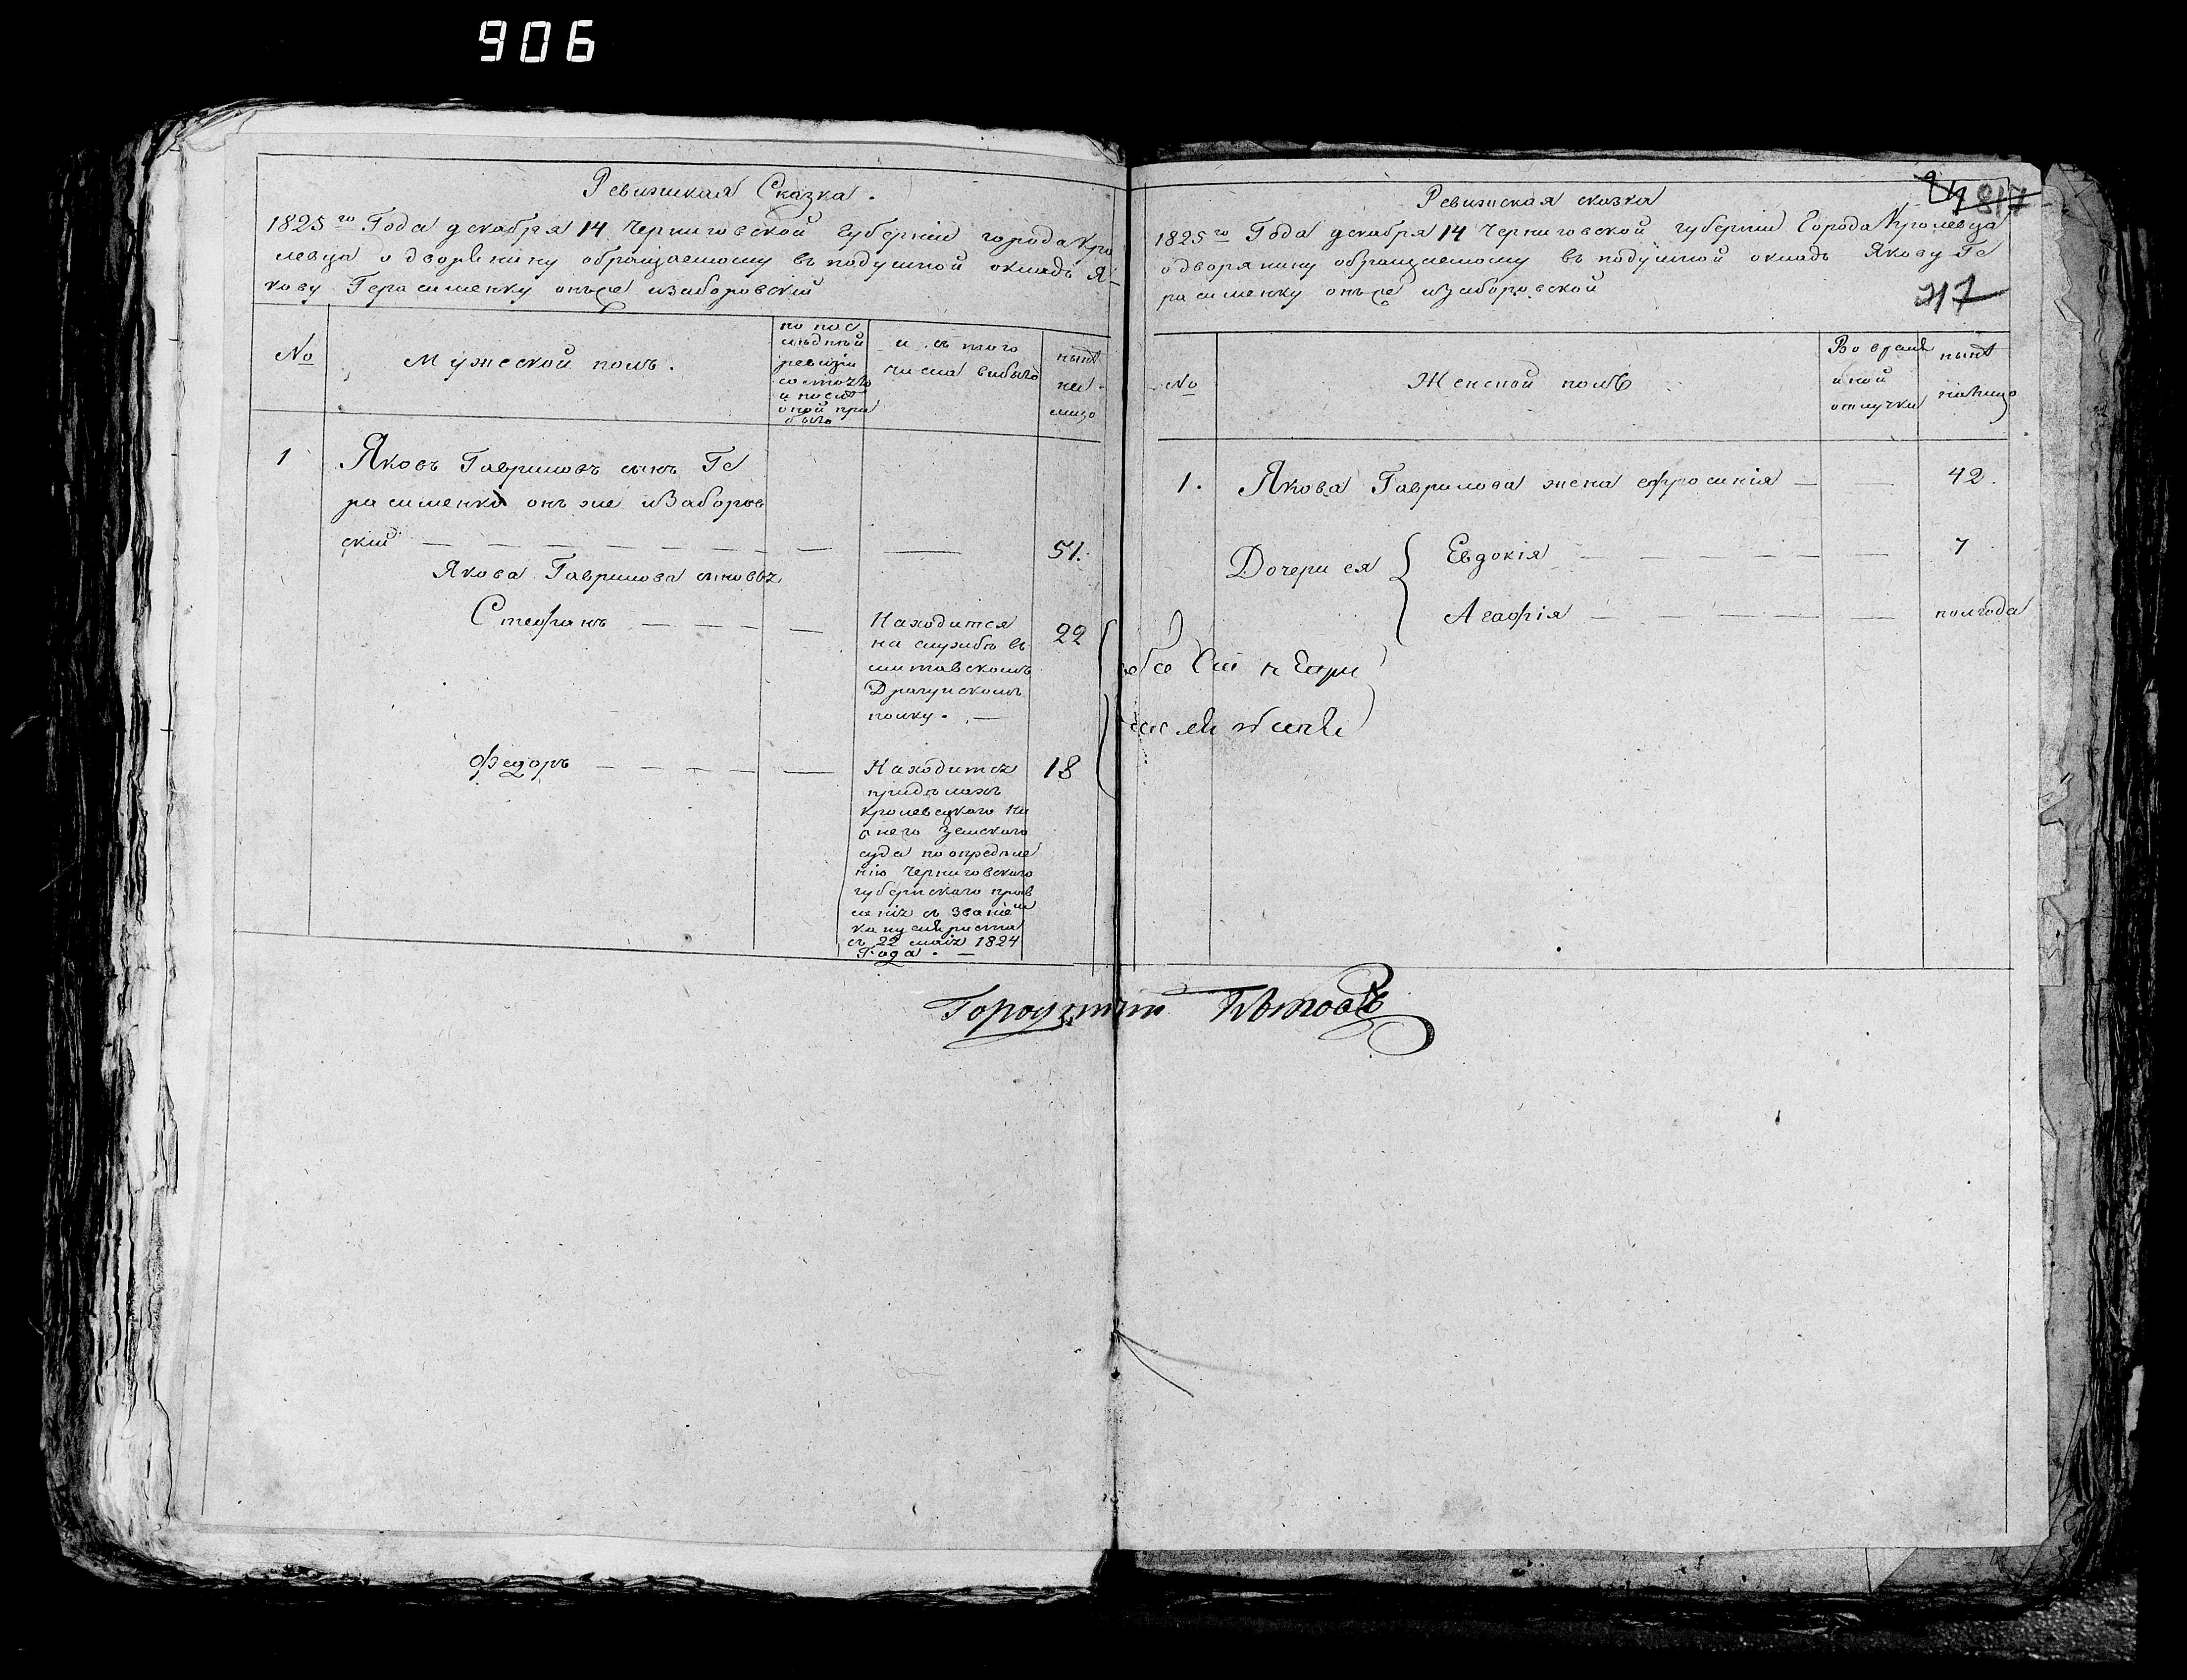 906
Ревижская Сказка.
1825го Года декабря 14 Черниговской губерніи города Кро
левца о дворенину обращаемому въ подушной окладъ Я-
кову Герасименку онъже изаборовскій
№
Мужеской полъ.
по пос
лѣдней
ревизіи
состояло
и послѣ
оной при
было
и съ того
числа выбыло
нынѣ
на-
лицо
1
Яковъ Гавриловъ сынъ Ге
расименко онъ же изаборов
скій
51.
Якова Гаврилова сыновья
Стефанъ
Находится
на службѣ въ
митавскомъ
Драгунскомъ
полку.
22
Федоръ
Находится
придѣлахъ
кролевецкого Ни
жнего Земского
суда по опредѣле
нію Черниговского
губернского прав
ленія въ званіи
канцеляриста
съ 22 маія 1824
Года.
18
24 817
Ревижская сказка
1825го Года декабря 14 Черниговской губерніи Города Кролевца
одворянину обращаемому въ подушной окладъ Якову Ге
расименку онъже изаборовской
217
№
Женской полъ
Во время
нной
отлучки
нынѣ
налицо
1. Якова Гаврилова жена ефросинія 42.
Дочери ея
Евдокія 7
Агафія полгода
Городничій